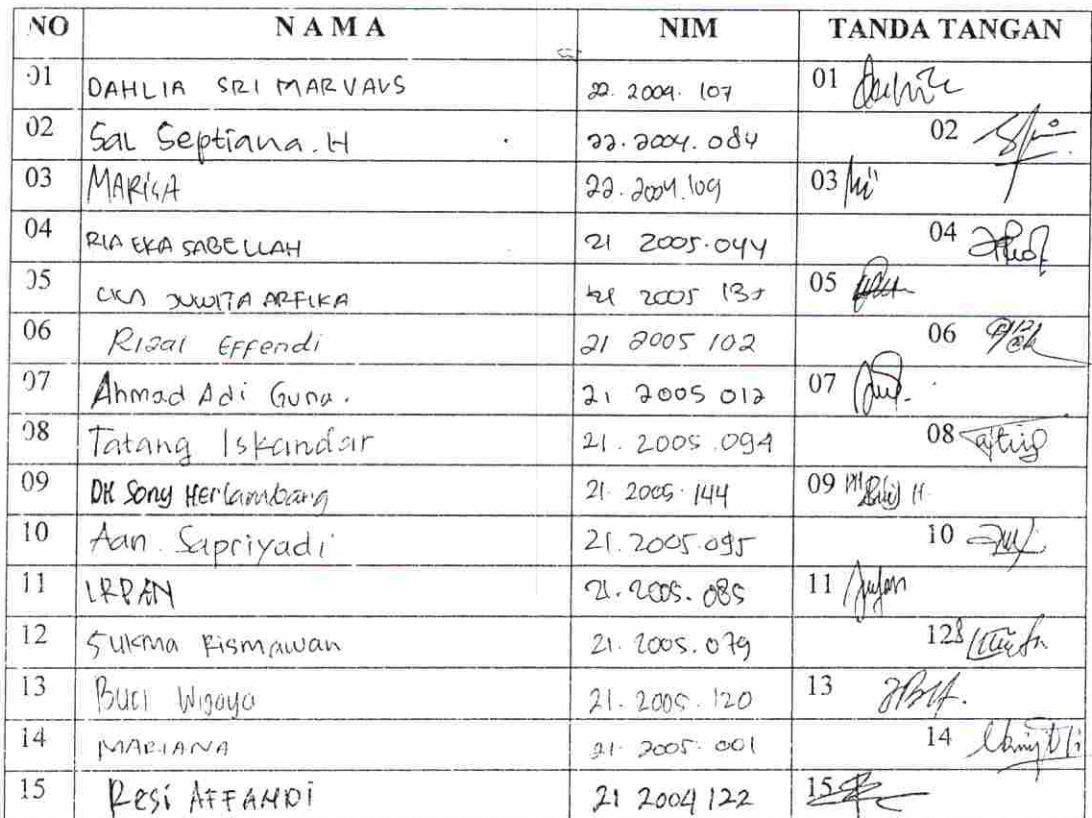 NO NAMA NIM TANDA TANGAN
01 DAHLIA SRI MARVAUS 22. 2004. 107 01
02 Sal Septiana. H 22. 2004. 084 02
03 MARISA 22. 2004. 109 03
04 RIA EKA SABELLAH 21 2005. 044 04
05 JUWITA ARFIKA 21 2005 05
06 Rizal Effendi 21 2005 102 06
07 Ahmad Adi Guna. 21 2005 012 07
08 Tatang Iskandar 21. 2005. 094 08
09 DH Sony Herlambang 21. 2005. 144 09
10 Aan Sapriyadi 21. 2005. 095 10
11 IRPAN 21. 2005. 085 11
12 Sukma Rismawan 21. 2005. 079 12
13 Wijaya 21. 2005. 120 13
14 MARIANA 21. 2005. 001 14
15 Resi AFFANDI 21 2004 122 15